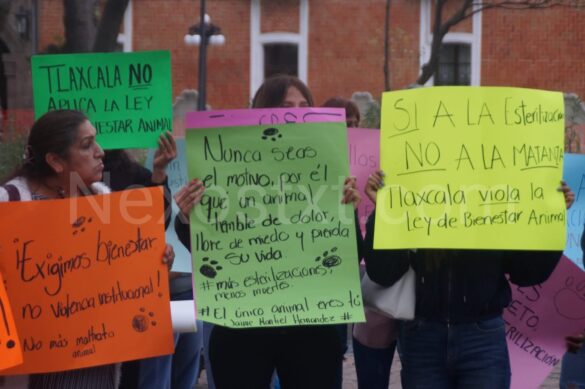 TLAXCALA NO
APLICA LA LEY
BIENESTAR ANIMAL
¡Exigimos bienestar
no violencia institucional!
No más maltrato
animal
Nunca seas
el motivo, por él
que un animal
tiemble de dolor,
libre de miedo y pierda
su vida
#más esterilizaciones,
menos muertes
#El único animal eres tú
Jaime
SI A LA Esterilización
NO A LA MATANZA
Tlaxcala viola la
Ley de Bienestar Animal
Nexostxt.com